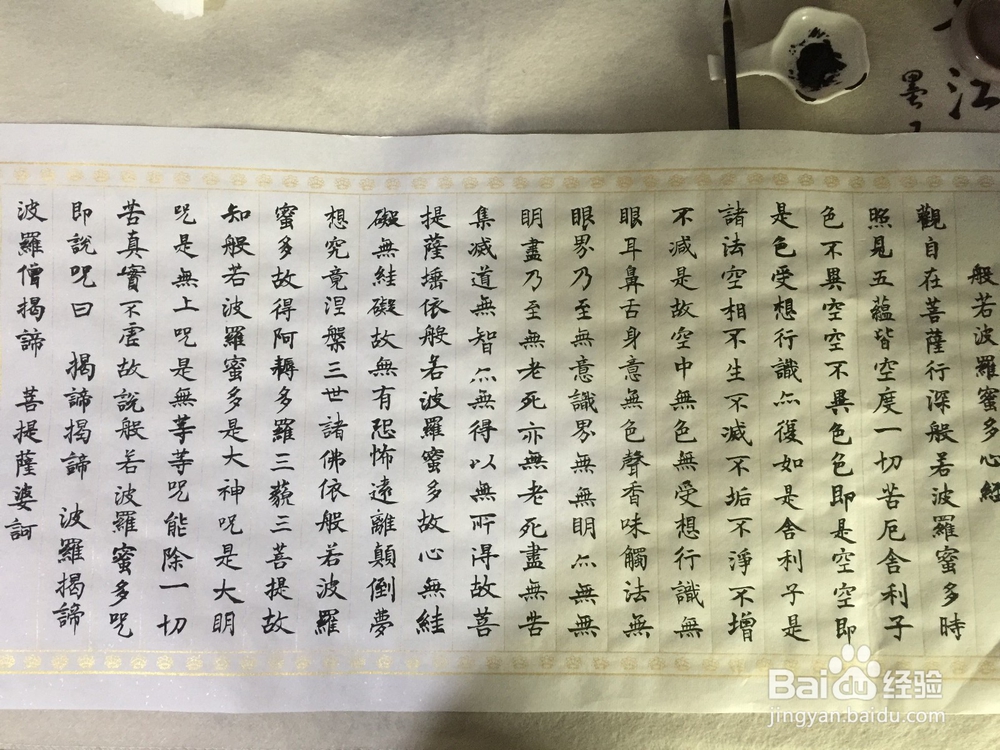 江
墨
般若波羅蜜多心經
觀自在菩薩行深般若波羅蜜多時
照見五蘊皆空度一切苦厄舍利子
色不異空空不異色色即是空空即
是色受想行識亦復如是舍利子是
諸法空相不生不滅不垢不淨不增
不減是故空中無色無受想行識無
眼耳鼻舌身意無色聲香味觸法無
眼界乃至無意識界無無明亦無無
明盡乃至無老死亦無老死盡無苦
集滅道無智亦無得以無所得故菩
提薩埵依般若波羅蜜多故心無絓
礙無絓礙故無有恐怖遠離顛倒夢
想究竟涅槃三世諸佛依般若波羅
蜜多故得阿耨多羅三藐三菩提故
知般若波羅蜜多是大神咒是大明
咒是無上咒是無等等咒能除一切
苦真實不虛故說般若波羅蜜多咒
即說咒曰 揭諦揭諦 波羅揭諦
波羅僧揭諦 菩提薩婆訶
Baidu经验
jingyan.baidu.com